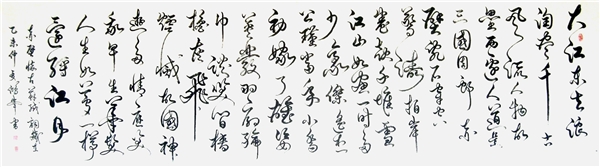 大江东去浪
淘尽千古
风流人物故
垒西边人道是
三國周郎赤
壁乱石穿空
惊涛拍岸
卷起千堆雪
江山如画一时多
少豪杰遥想
公瑾当年小乔
初嫁了雄姿
英发羽扇纶
巾谈笑间樯
橹灰飞
烟灭故國神
遊多情应笑
我早生华发
人生如梦一樽
還酹江月
赤壁怀古苏轼词岁在
乙未仲夏